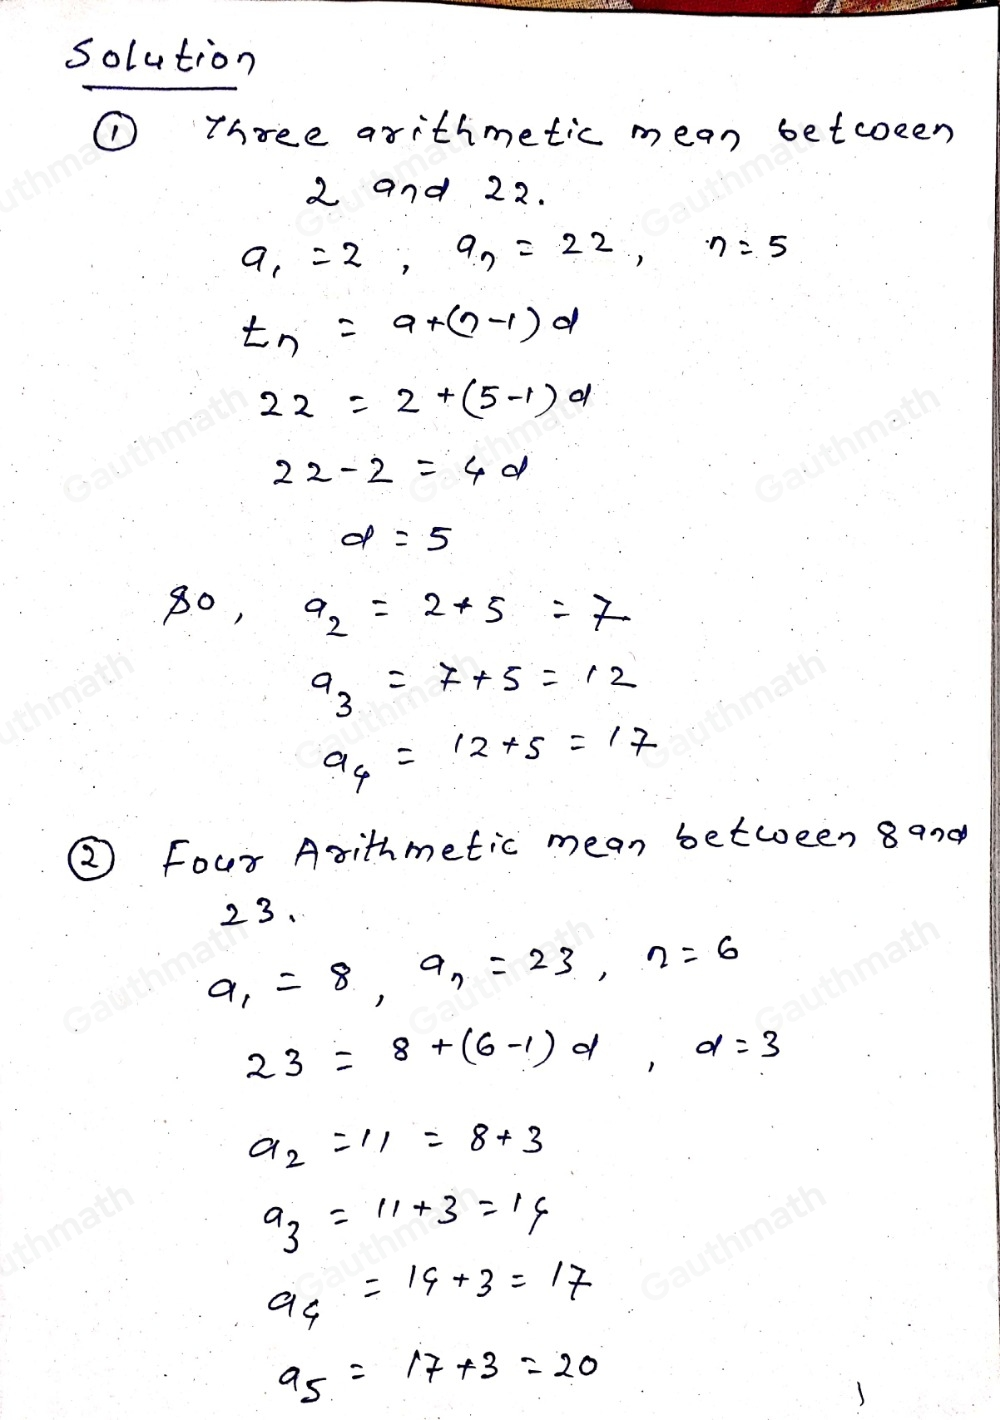 Solution
① Three arithmetic mean between
2 and 22.
a₁ = 2 , aₙ = 22 , n = 5
tₙ = a+(n-1)d
22 = 2+(5-1)d
22-2 = 4d
d = 5
So, a₂ = 2+5 = 7
a₃ = 7+5 = 12
a₄ = 12+5 = 17
② Four Arithmetic mean between 8 and
23.
a₁ = 8 , aₙ = 23 , n = 6
23 = 8+(6-1)d , d = 3
a₂ = 11 = 8+3
a₃ = 11+3 = 14
a₄ = 14+3 = 17
a₅ = 17+3 = 20